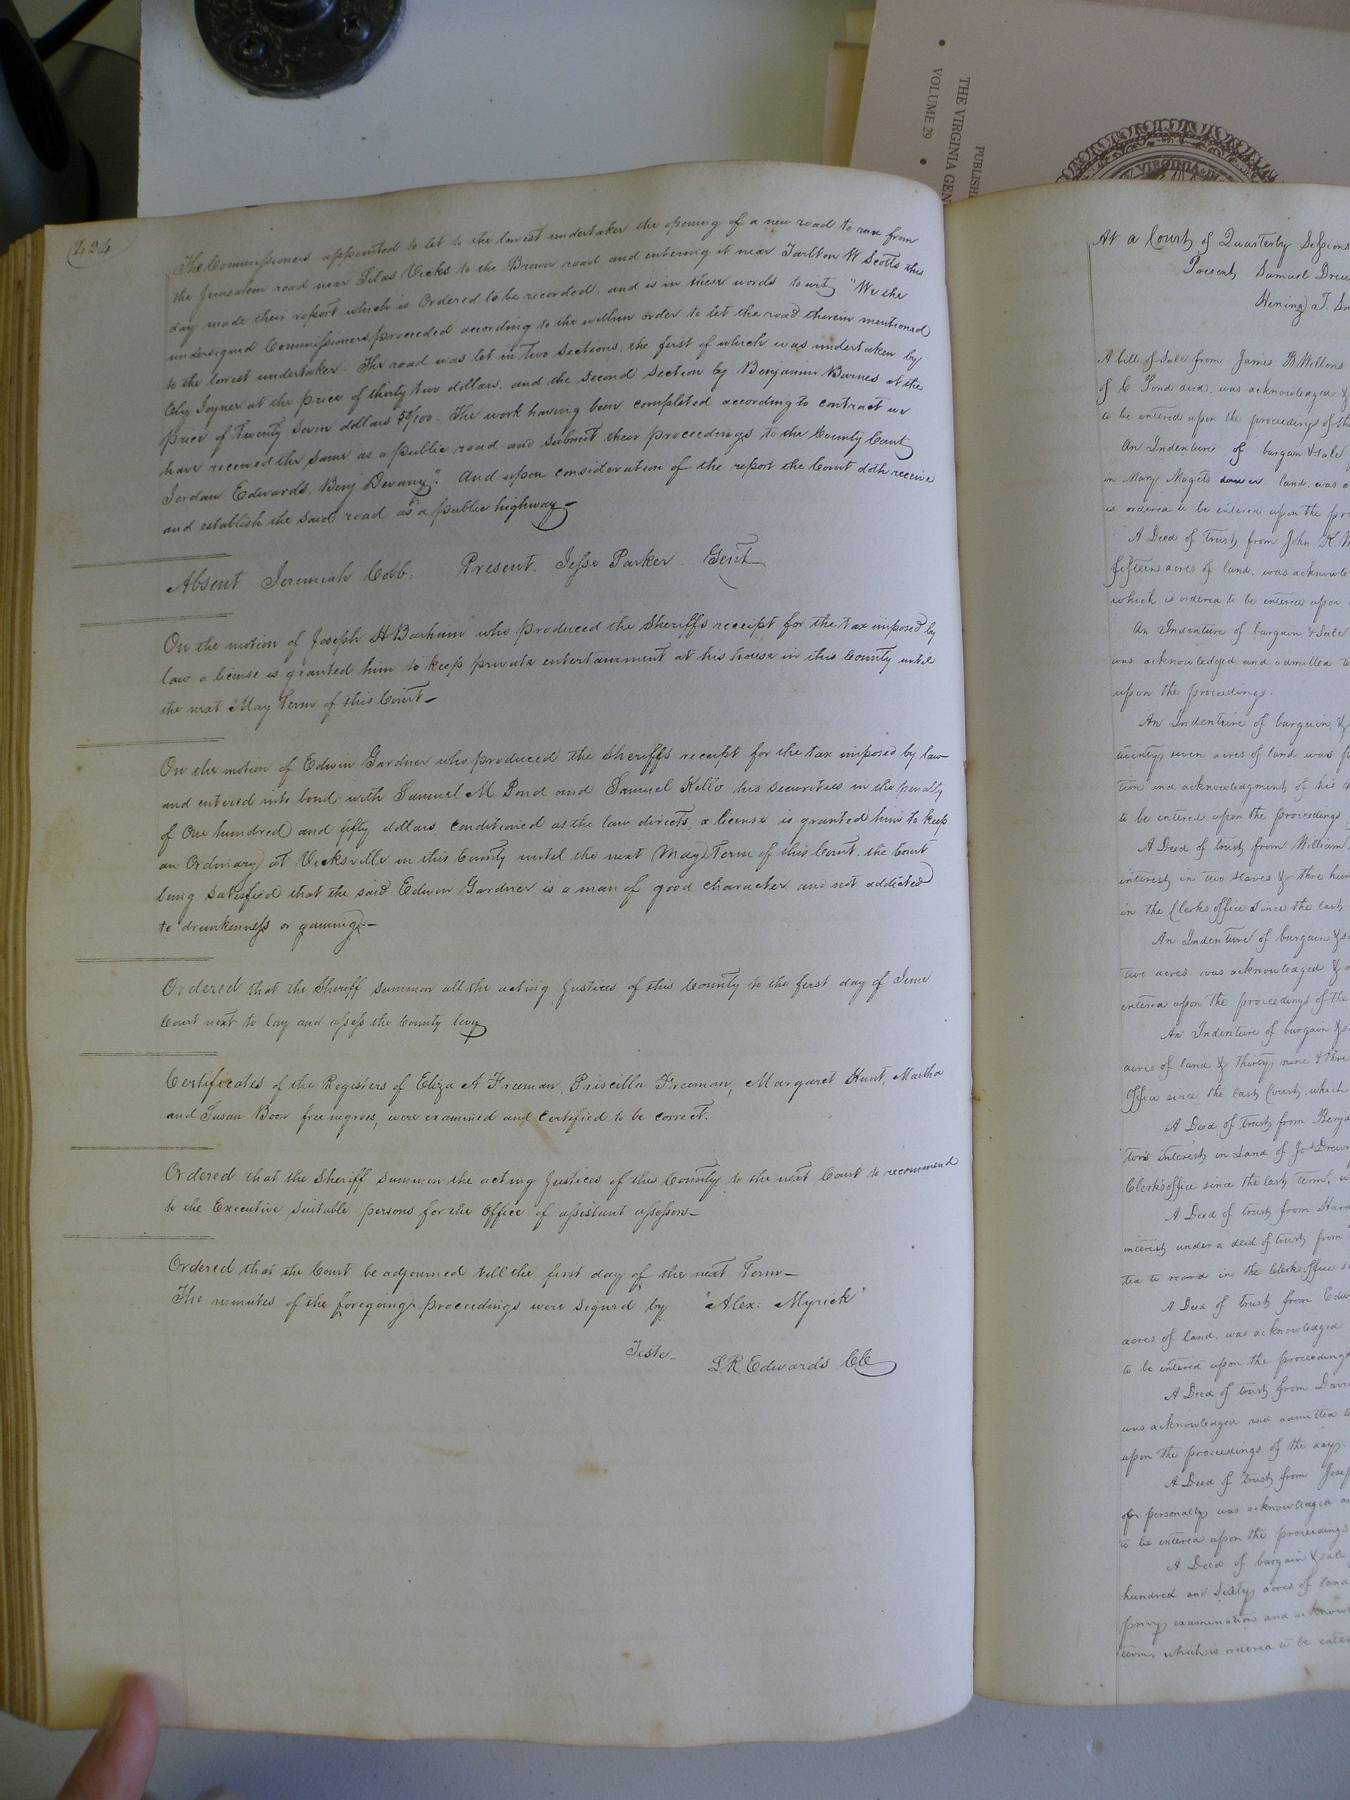 THE VIRGINIA GEN
VOLUME 29
PUBLISH
VIRGINIA
424
The Commissioners appointed to let to the lowest undertaker the opening of a new road to run from
the Jerusalem road near Silas Vicks to the Brown road and entering it near Tarlton W Scotts this
day made their report which is Ordered to be recorded, and is in these words to wit, "We the
undersigned Commissioners proceeded according to the within order to let the road therein mentioned
to the lowest undertaker. The road was let in two sections, the first of which was undertaken by
Ely Joyner at the price of thirty two dollars, and the second section by Benjamin Barnes at the
price of Twenty seven dollars 50/100. The work having been completed according to contract we
have received the same as a public road and submit their proceedings to the County Court
Jordan Edwards, Benj Devany." And upon consideration of the report the Court doth receive
and establish the said road as a public highway
Absent Jeremiah Cobb. Present. Jesse Parker. Gent
On the motion of Joseph H Barham who produced the Sheriffs receipt for the tax imposed by
law a license is granted him to keep private entertainment at his house in this County until
the next May Term of this Court
On the motion of Edwin Gardner who produced the Sheriffs receipt for the tax imposed by law
and entered into bond with Samuel M Pond and Samuel Kello his securities in the penalty
of One hundred and fifty dollars, conditioned as the law directs, a license is granted him to keep
an Ordinary at Vicksville in this County until the next May Term of this Court, the Court
being satisfied that the said Edwin Gardner is a man of good character and not addicted
to drunkenness or gaming
Ordered that the Sheriff summon all the acting Justices of this County to the first day of June
Court next to lay and assess the County levy
Certificates of the Registers of Eliza A Freeman, Priscilla Freeman, Margaret Hunt, Martha
and Susan Boon free negroes, were examined and certified to be correct.
Ordered that the Sheriff summon the acting Justices of this County to the next Court to recommend
to the Executive suitable persons for the Office of assistant assessors
Ordered that the Court be adjourned till the first day of the next Term
The minutes of the foregoing proceedings were signed by "Alex: Myrick"
Teste.
L R Edwards CC
At a Court of Quarterly Sessions
Present Samuel Drew
A bill of sale from James B
of C Pond decd. was acknowledged &
to be entered upon the proceedings of th
An Indenture of bargain & sale
in Mary Magets land, was
is ordered to be entered upon the pro
A Deed of trust from John K.
fifteen acres of land, was acknowle
which is ordered to be entered upon
An Indenture of bargain & sale
was acknowledged and admitted to
upon the proceedings.
An Indenture of bargain &
twenty seven acres of land was
tion and acknowledgment of his
to be entered upon the proceedings
A Deed of trust from William
interest in two slaves & three hun
in the Clerks office since the last
An Indenture of bargain &
two acres was acknowledged &
entered upon the proceedings of the
An Indenture of bargain &
acres of land & thirty nine & three
Office since the last Court, which
A Deed of trust from Benja
tors interest in Land of Jos Drewr
Clerks office since the last term,
A Deed of trust from Hard
interest under a deed of trust from
ted to record in the Clerks office
A Deed of trust from Edw
acres of land, was acknowledged
to be entered upon the proceedings
A Deed of trust from Davi
was acknowledged and admitted to
upon the proceedings of the day.
A Deed of trust from Jose
of personalty was acknowledged
to be entered upon the proceedings
A Deed of bargain & sale
hundred and sixty acres of land
privy examination and acknow
term, which is ordered to be enter